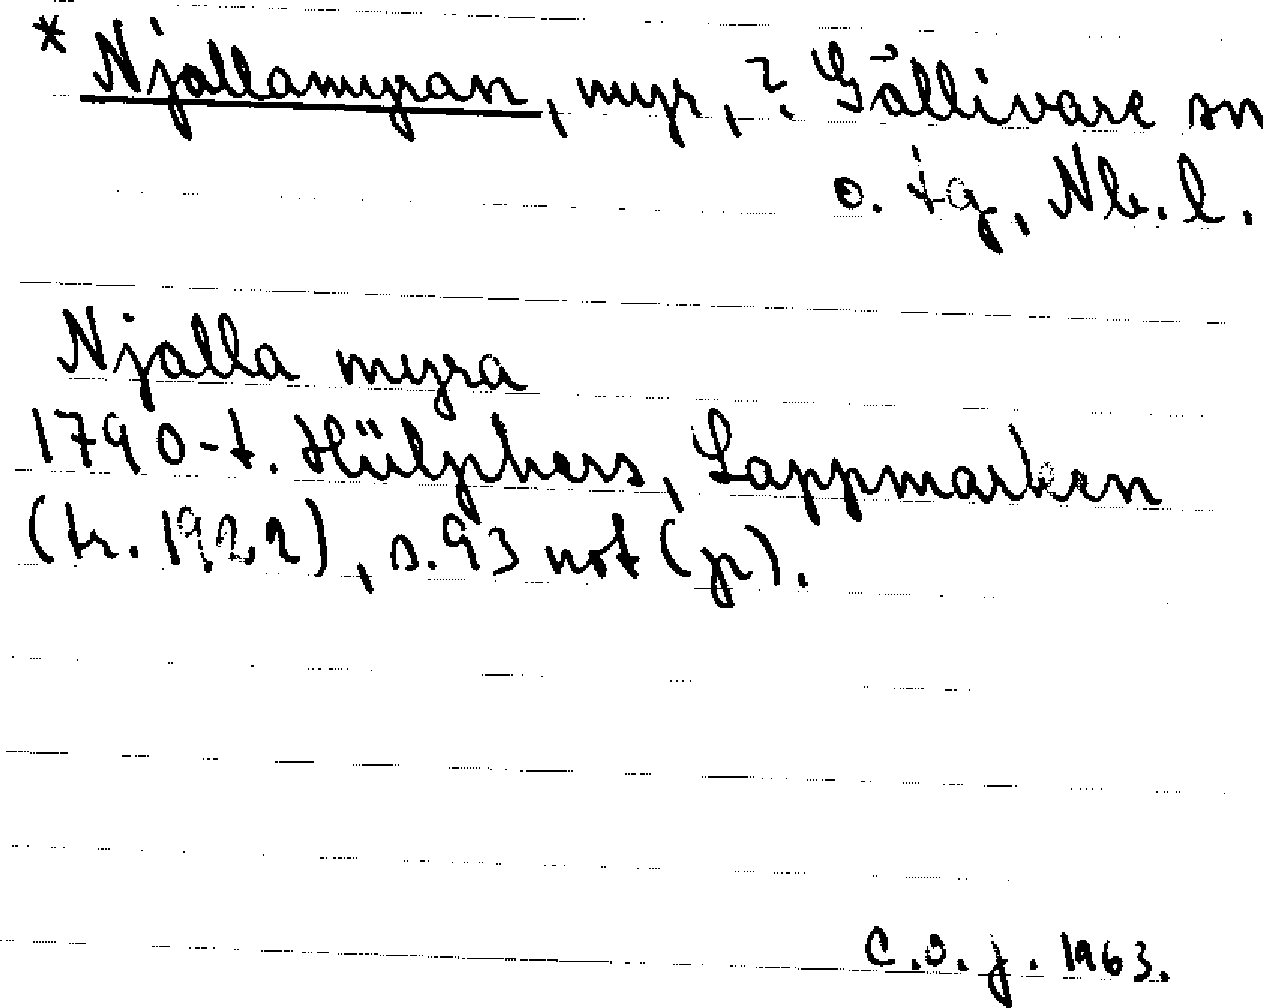 * Njallamyran, myr, ? Gällivare sn
o. tg, Nb. l.
Njalla myra
1790-t. Hülphers, Lappmarken
(tr. 1922), s. 93 not (pr).
C.O.J. 1963.